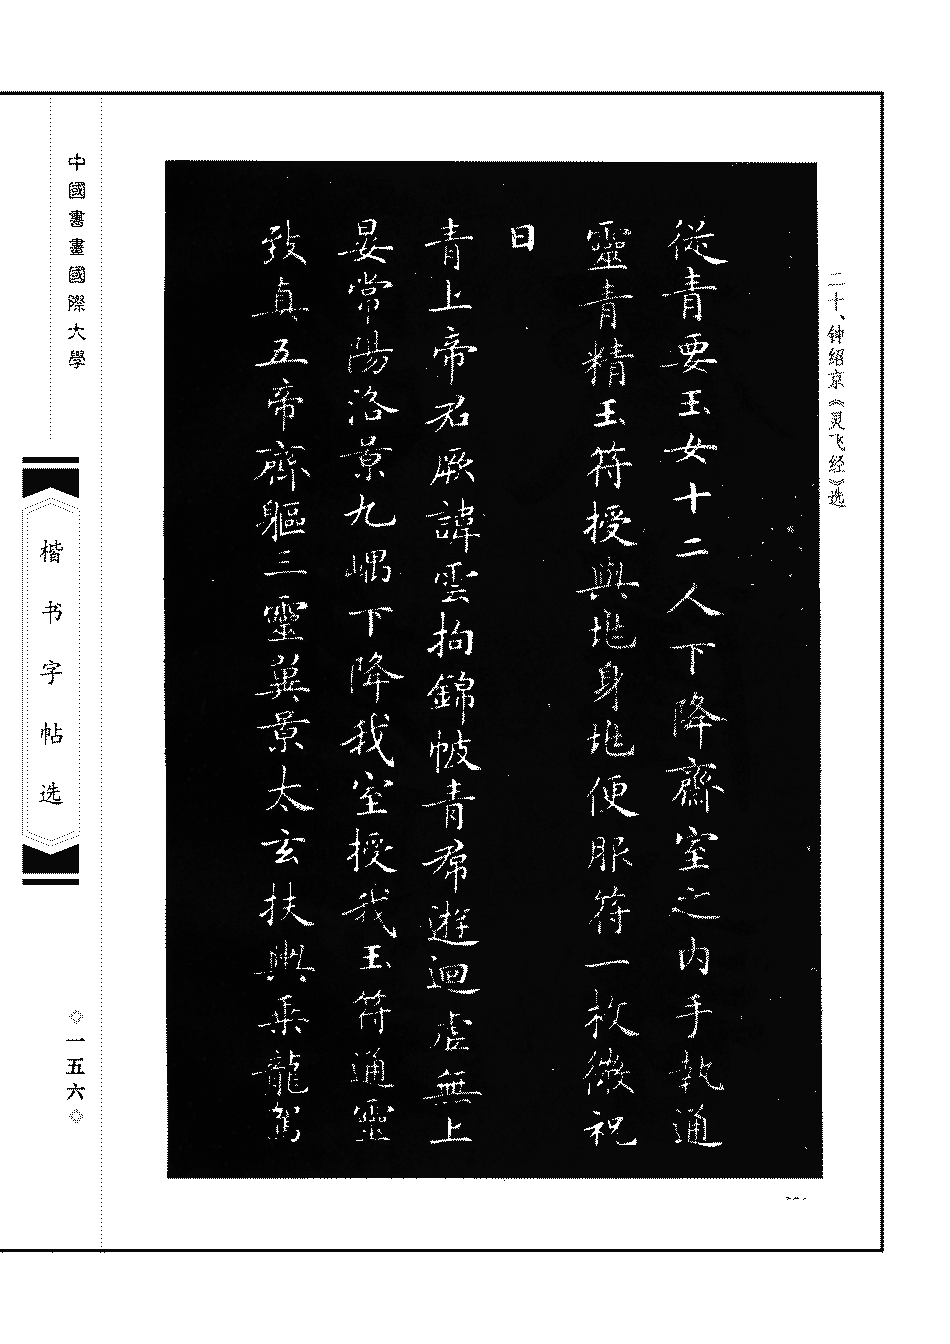 二十、钟绍京《灵飞经》选
從青要玉女十二人下降齋室之内手執通
靈青精玉符授與兆身兆便服符一枚微祝
曰
青上帝君厥諱雲拘錦帔青帬遊迴虚無上
晏常陽洛景九嵎下降我室授我玉符通靈
致真五帝齊軀三靈翼景太玄扶轝乘龍駕
中國書畫國際大學
楷书字帖选
◇一五六◇